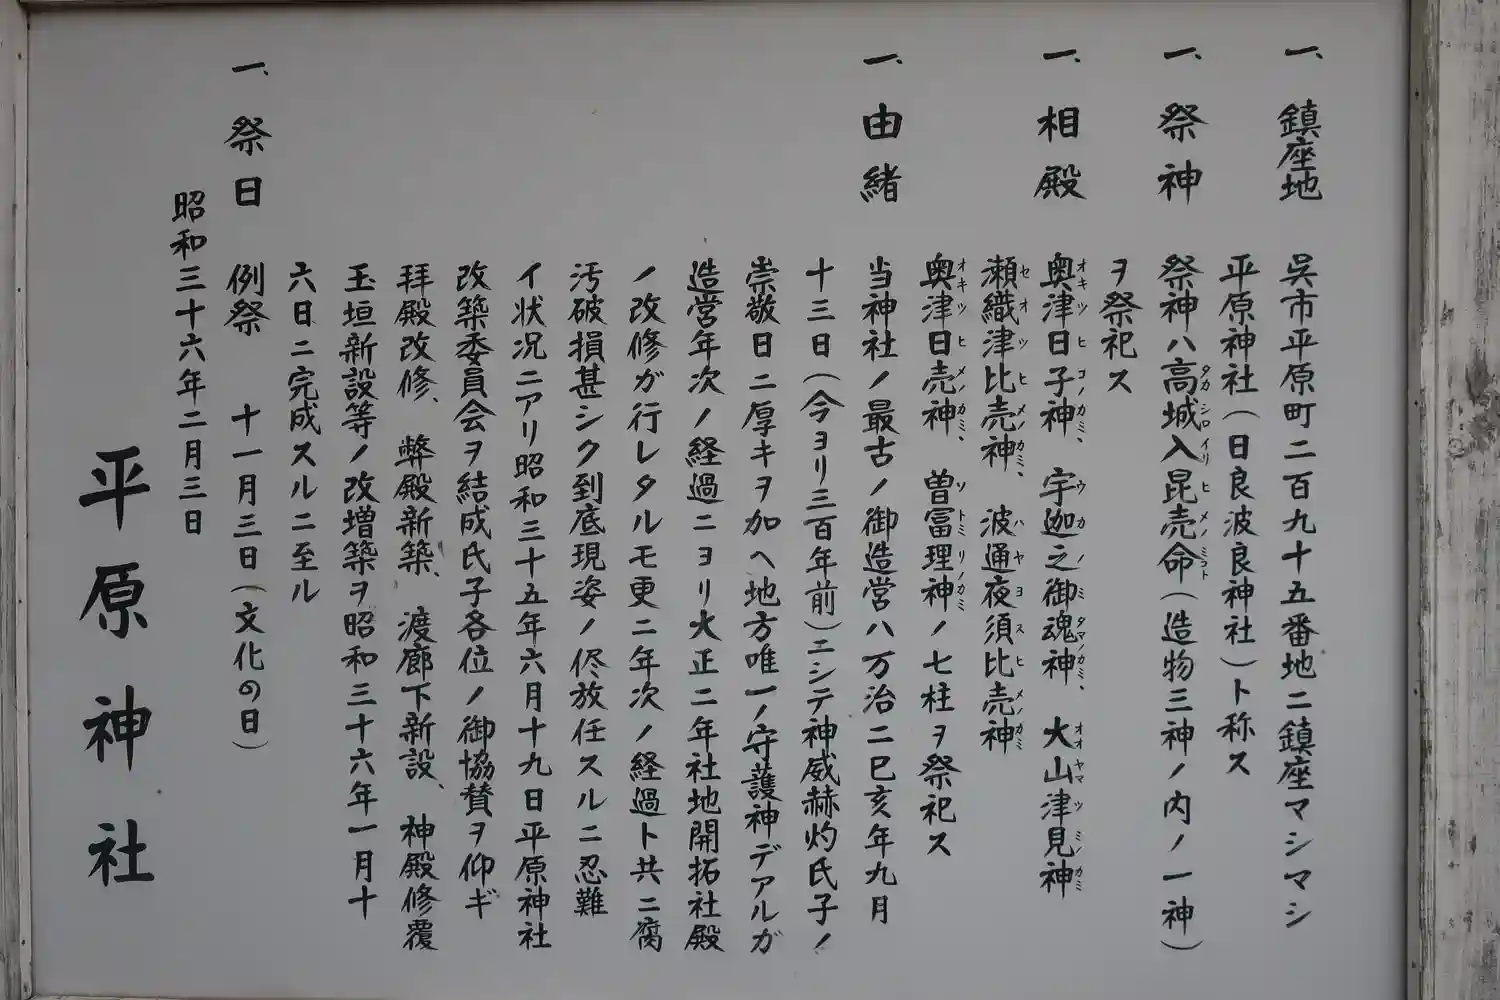 一、鎮座地 呉市平原町二百九十五番地ニ鎮座マシマシ
平原神社(日良波良神社)ト称ス
一、祭神 祭神ハ高城入昆売命(造物三神ノ内ノ一神)
タカシロイリヒメノミコト
ヲ祭祀ス
一、相殿 奥津日子神、宇迦之御魂神、大山津見神
オキツヒコノカミ、ウカノミタマノカミ、オオヤマツミノカミ
瀬織津比売神、波通夜須比売神
セオツヒメノカミ、ハヤヨスヒメノカミ
奥津日売神、曽冨理神ノ七柱ヲ祭祀ス
オキツヒメノカミ、ソトミリノカミ
一、由緒 当神社ノ最古ノ御造営ハ万治二巳亥年九月
十三日(今ヨリ三百年前)ニシテ神威赫灼氏子ノ
崇敬日ニ厚キヲ加ヘ地方唯一ノ守護神デアルガ
造営年次ノ経過ニヨリ大正二年社地開拓社殿
ノ改修ガ行レタルモ更ニ年次ノ経過ト共ニ腐
汚破損甚シク到底現姿ノ侭放任スルニ忍難
イ状況ニアリ昭和三十五年六月十九日平原神社
改築委員会ヲ結成氏子各位ノ御協賛ヲ仰ギ
拝殿改修、弊殿新築、渡廊下新設、神殿修覆
玉垣新設等ノ改増築ヲ昭和三十六年一月十
六日ニ完成スルニ至ル
一、祭日 例祭 十一月三日(文化の日)
昭和三十六年二月三日
平原神社